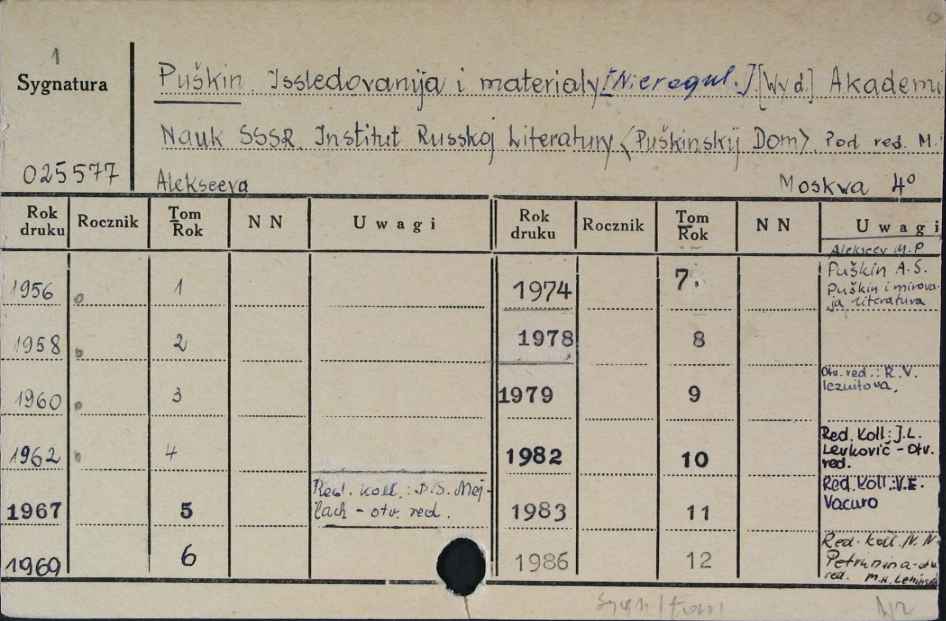 1
Sygnatura
Puškin. Issledovanija i materialy [Nieregul.] [Wyd.] Akademi
Nauk SSSR. Institut Russkoj Literatury <Puškinskij Dom>. Pod red. M.
025577
Alekseeva
Moskwa 4°
Rok druku Rocznik Tom Rok NN Uwagi Rok druku Rocznik Tom Rok NN Uwagi
Alekseev M.P
1956 1 1974 7. Puškin A.S.
Puškin i mirova-
ja literatura
1958 2 1978 8
1960 3 1979 9 Otv. red.: R.V.
Iezuitova.
1962 4 1982 10 Red. Koll.: J.L.
Levkovič - otv.
red.
1967 5 Red. koll.: B.S. Mej-
lach - otv. red. 1983 11 Red. Koll.: V.E.
Vacuro
1969 6 1986 12 Red. koll. N.N.
Petrunina - otv
red.
1/2